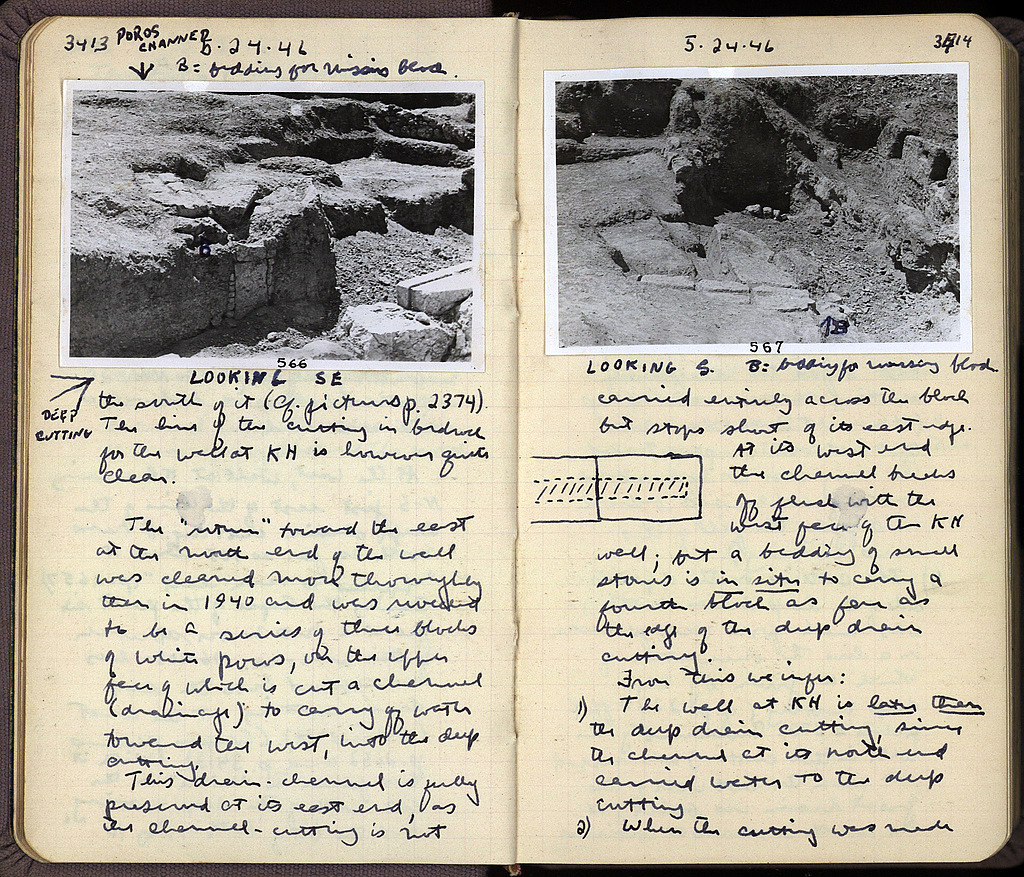 3413
POROS
CHANNEL
5.24.46
B = bedding for missing block.
B
566
LOOKING SE
DEEP
CUTTING
the south of it (Cf. pictures p. 2374).
The line of the cutting in bedrock
for the wall at KH is however quite
clear.
The "return" toward the east
at the north end of the wall
was cleared more thoroughly
than in 1940 and was revealed
to be a series of three blocks
of white poros, on the upper
face of which is cut a channel
(drainage) to carry off water
toward the west, into the deep
cutting.
This drain-channel is fully
preserved at its east end, as
the channel-cutting is not
5.24.46
3414
B
567
LOOKING S. B = bedding for missing block
carried entirely across the block
but stops short of its east edge.
At its west end
the channel breaks
off flush with the
west face of the KH
wall; but a bedding of small
stones is in situ to carry a
fourth block as far as
the edge of the deep drain
cutting.
From this we infer:
1) The wall at KH is later than
the deep drain cutting, since
the channel at its north end
carried water to the deep
cutting
2) When the cutting was made